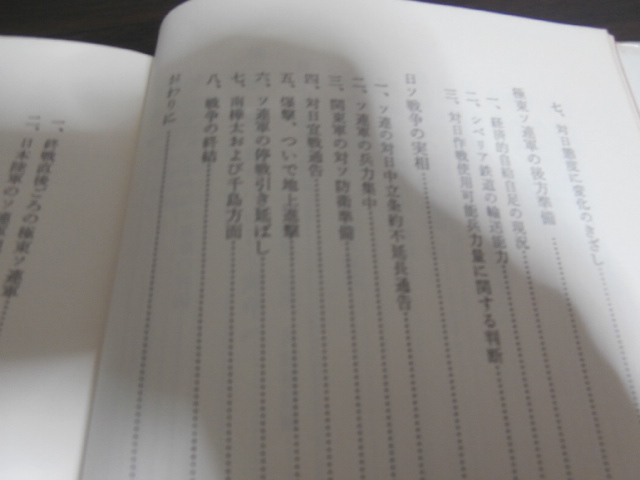 七、対日態度に変化のきざし
極東ソ連軍の後方準備
一、経済的自給自足の現況
二、シベリア鉄道の輸送能力
三、対日作戦使用可能兵力量に関する判断
日ソ戦争の実相
一、ソ連の対日中立条約不延長通告
二、ソ連軍の兵力集中
三、関東軍の対ソ防衛準備
四、対日宣戦通告
五、爆撃、ついで地上進撃
六、ソ連軍の停戦引き延ばし
七、南樺太および千島方面
八、戦争の終結
おわりに
一、終戦直後ごろの極東ソ連軍
二、日本陸軍のソ連